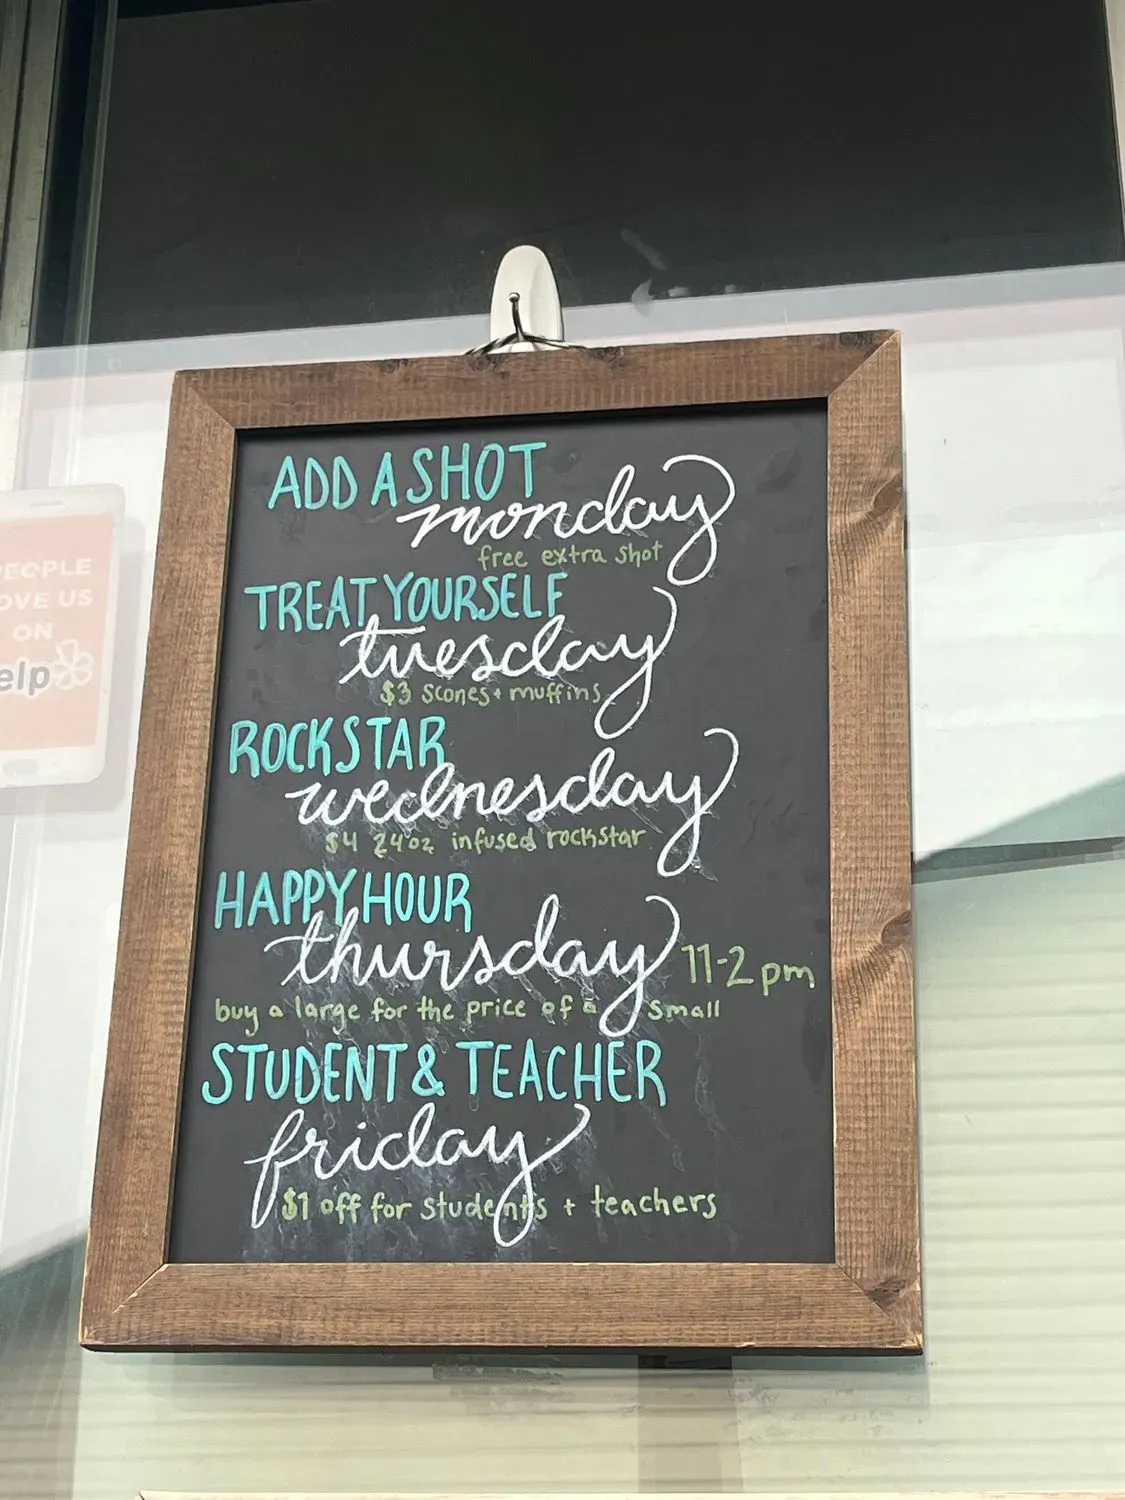 ADD A SHOT
monday
free extra shot
TREAT YOURSELF
tuesday
$3 scones + muffins
ROCKSTAR
wednesday
$4 24oz infused rockstar
HAPPY HOUR
thursday 11-2 pm
buy a large for the price of a small
STUDENT & TEACHER
friday
$1 off for students + teachers
EOPLE
OVE US
ON
elp